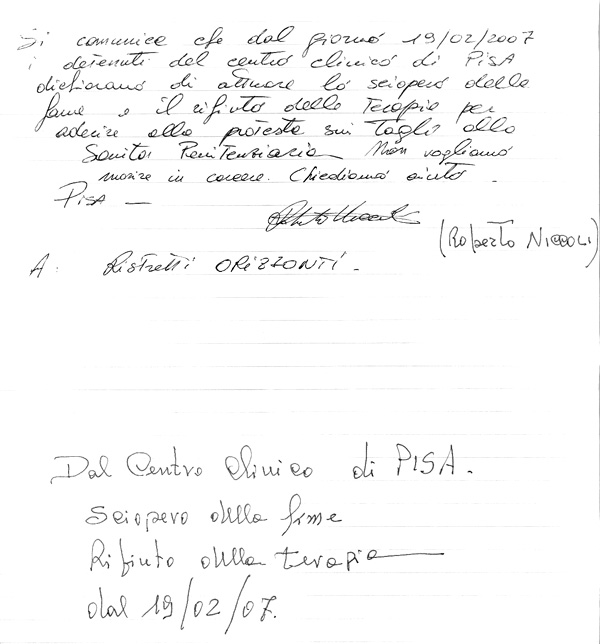 Si comunica che dal giorno 19/02/2007
i detenuti del centro clinico di PISA
dichiarano di attuare lo sciopero della
fame e il rifiuto della Terapia per
aderire alla protesta sui Tagli alla
Sanità Penitenziaria Non vogliamo
morire in carcere. Chiediamo aiuto.
PISA —
(Roberto NICCOLI)
A: Ristretti ORIZZONTI.
Dal Centro Clinico di PISA.
Sciopero della fame
Rifiuto della terapia
dal 19/02/07.